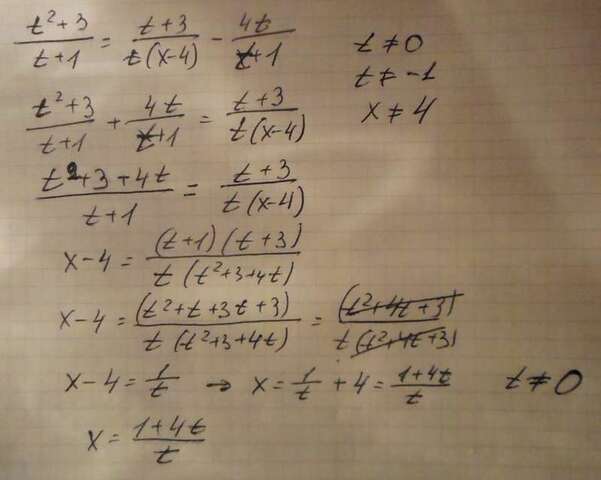 (t²+3)/(t+1) = (t+3)/(t(x-4)) - 4t/(t+1) t≠0
t≠-1
(t²+3)/(t+1) + 4t/(t+1) = (t+3)/(t(x-4)) x≠4
(t²+3+4t)/(t+1) = (t+3)/(t(x-4))
x-4 = ((t+1)(t+3))/(t(t²+3+4t))
x-4 = (t²+t+3t+3)/(t(t²+3+4t)) = (t²+4t+3)/(t(t²+4t+3))
x-4 = 1/t → x = 1/t + 4 = (1+4t)/t t≠0
x = (1+4t)/t